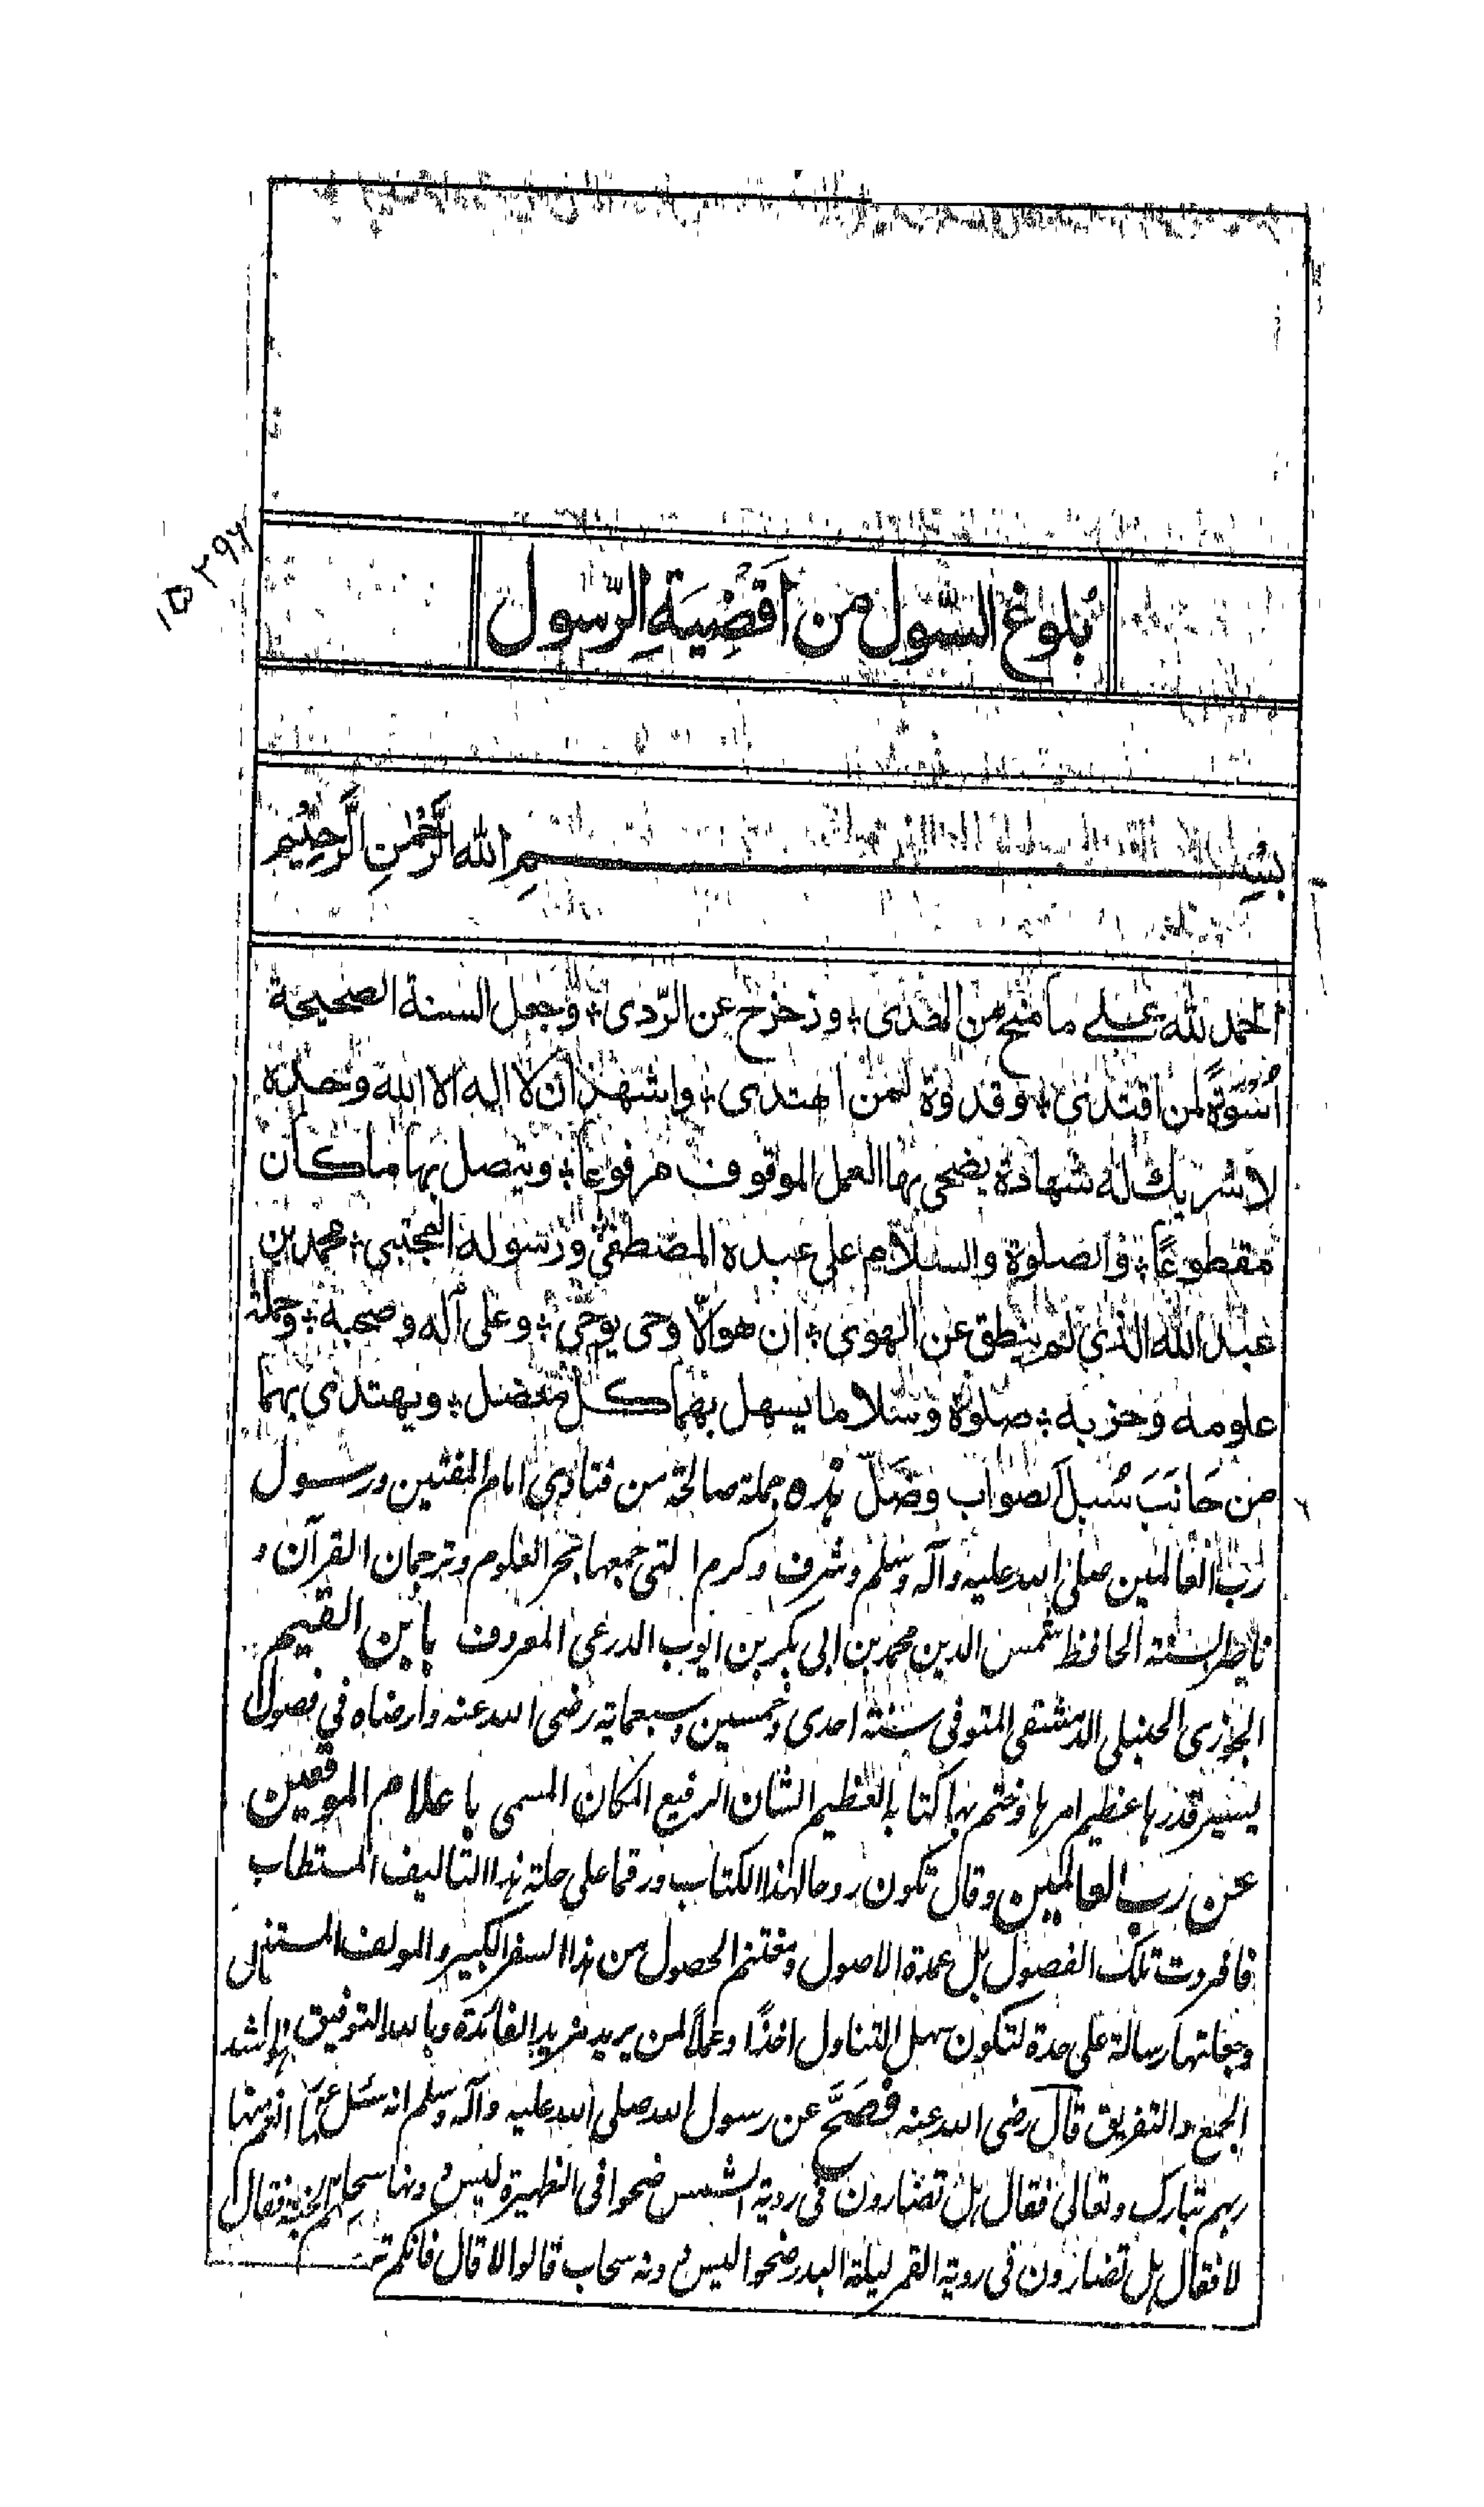 بُلوغ السّول من اَقضِيَةِ الرّسول
١٥٢٩٧
بِسْمِ اللّٰهِ الرَّحْمٰنِ الرَّحِيْمِ
الحمد لله على ما منح من الهدى ؞ وزحزح عن الرّدى ؞ وجعل السنة الصحيحة
اُسْوَةً لمن اقتدى ؞ وقدوة لمن اهتدى ؞ واشهد ان لا اله الا الله وحده
لا شريك له شهادة يضحى بها العمل الموقوف مرفوعاً ؞ ويتصل بها ما كان
مقطوعاً ؞ والصلوة والسلام على عبده المصطفى ورسوله المجتبى ؞ محمد بن
عبد الله الذي لم ينطق عن الهوى ؞ ان هو الّا وحى يوحى ؞ وعلى آله وصحبه ؞ وحملة
علومه وحزبه ؞ صلوة وسلاما يسهل بهما كل معضل ؞ ويهتدى بهما
من جَانَبَ سُبلَ الصواب وضَلّ هذه جملة صالحة من فتاوى امام المفتين ورسول
رب العالمين صلى الله عليه وآله وسلم وشرف وكرم التى جمعها بحر العلوم وترجمان القرآن و
ناظر السنة الحافظ شمس الدين محمد بن ابى بكر بن ايوب الدرعى المعروف بابن القيم
الجوزى الحنبلى الدمشقى المتوفى سنة احدى وخمسين وسبعماية رضى الله عنه وارضاه في فصول
يسير قدرها عظيم امرها وختم بها كتابه العظيم الشان الرفيع المكان المسمى باعلام الموقعين
عن رب العالمين وقال تكون روحا لهذا الكتاب ورقما على حلة هذا التاليف المستطاب
فافردت تلك الفصول بل عمدة الاصول ومغتنم الحصول من هذا السفر الكبير والمولف
وجعلتها رسالة على حدة لتكون سهل التناول اخذًا وعملًا لمن يريد مزيد الفائدة وبالله التوفيق
الجمع والتفريق قال رضى الله عنه فصَحَّ عن رسول الله صلى الله عليه وآله وسلم انه سئل عن
ربهم تبارك وتعالى فقال هل تضارون في روية الشمس ضحوا فى الظهيرة ليس دونها سحاب فقال
لا فقال هل تضارون فى روية القمر ليلة البدر ضحوا ليس دونه سحاب قالوا لا قال فانكم